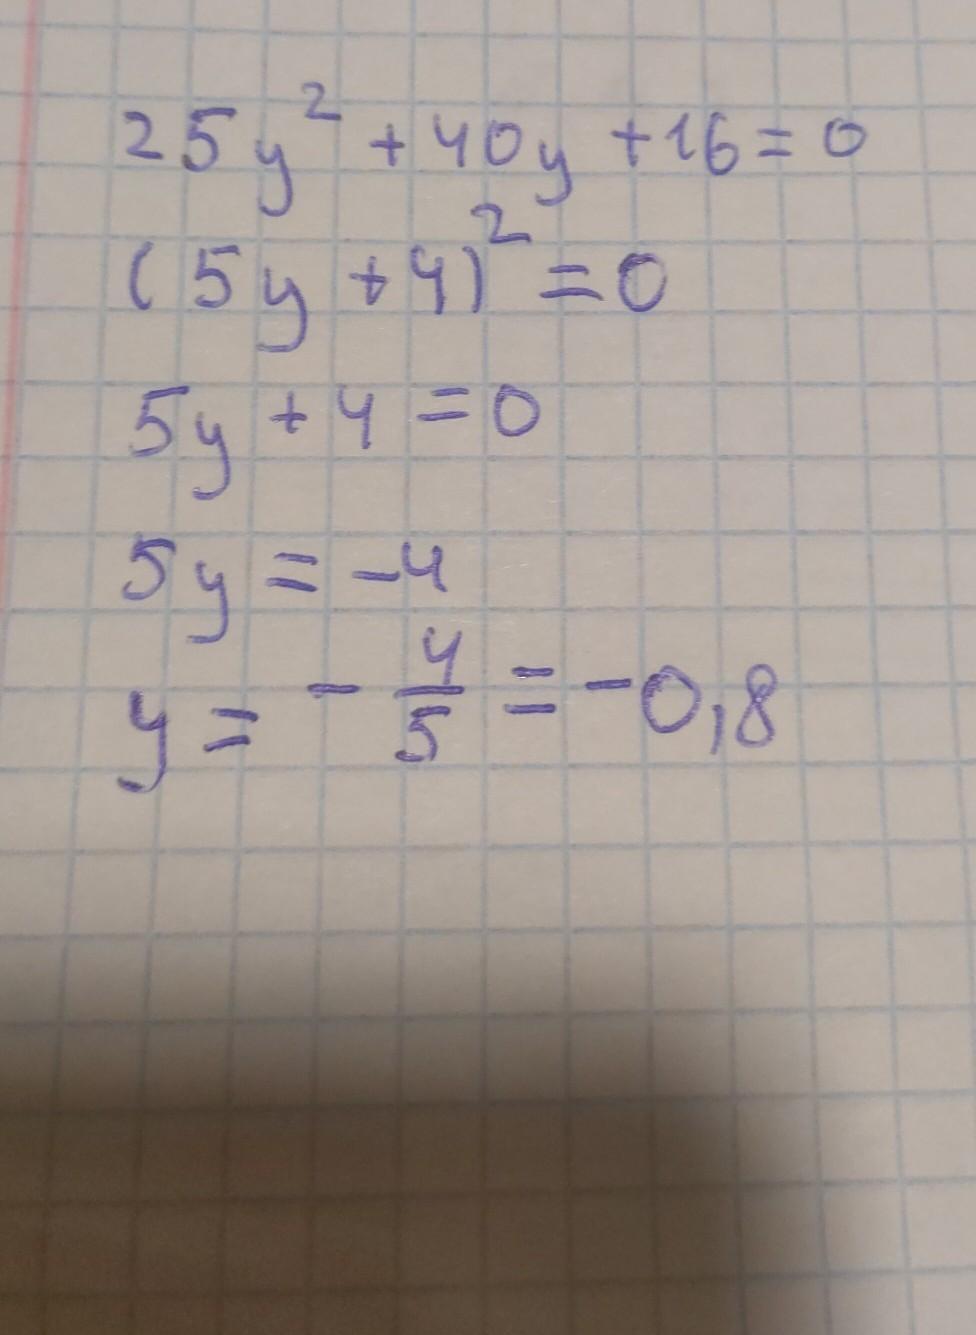 25y² + 40y + 16 = 0
(5y + 4)² = 0
5y + 4 = 0
5y = -4
y = - 4/5 = -0,8